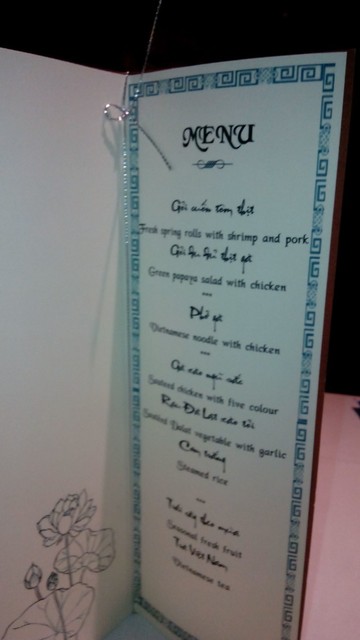 MENU
Gỏi cuốn tôm thịt
Fresh spring rolls with shrimp and pork
Gỏi đu đủ thịt gà
Green papaya salad with chicken
***
Phở gà
Vietnamese noodle with chicken
***
Gà xào ngũ sắc
Sauteed chicken with five colour
Rau Đà Lạt xào tỏi
Sauteed Dalat vegetable with garlic
Cơm trắng
Steamed rice
***
Trái cây theo mùa
Seasonal fresh fruit
Trà Việt Nam
Vietnamese tea